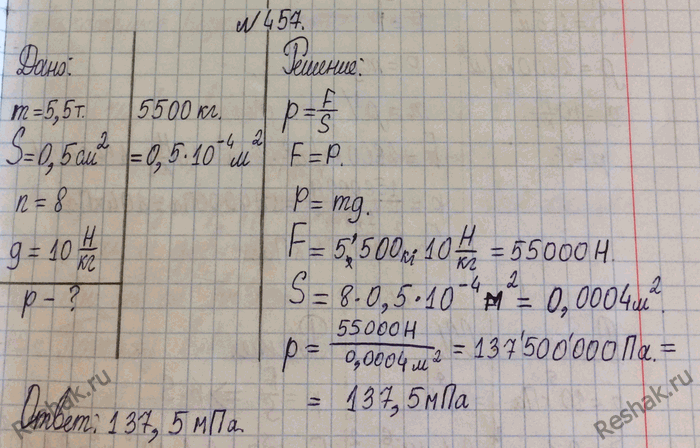 №457.
Дано:
m=5,5т. 5500 кг.
S=0,5см² =0,5·10⁻⁴м²
n=8
g=10 Н/кг
p-?
Решение:
p=F/S
F=P.
P=mg.
F=5,500кг·10 Н/кг=55000Н.
S=8·0,5·10⁻⁴м²=0,0004м².
p=55000Н/0,0004м²=137'500'000Па.=
=137,5мПа
Ответ: 137,5мПа.
Reshak.ru
Reshak.ru